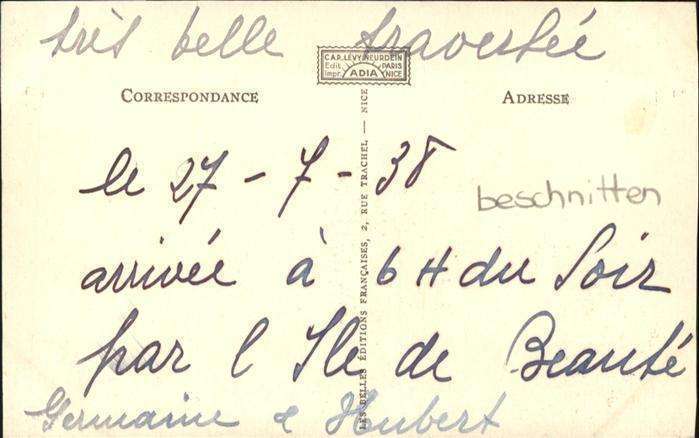 très belle traversée
CAP. LEVY NEURDEIN
Edit. PARIS
Impr. ADIA NICE
CORRESPONDANCE
ADRESSE
le 27-7-38
beschnitten
arrivée à 6 H du Soir
par l Ile de Beauté
Germaine & Hubert
LES BELLES ÉDITIONS FRANÇAISES, 2, RUE TRACHEL — NICE